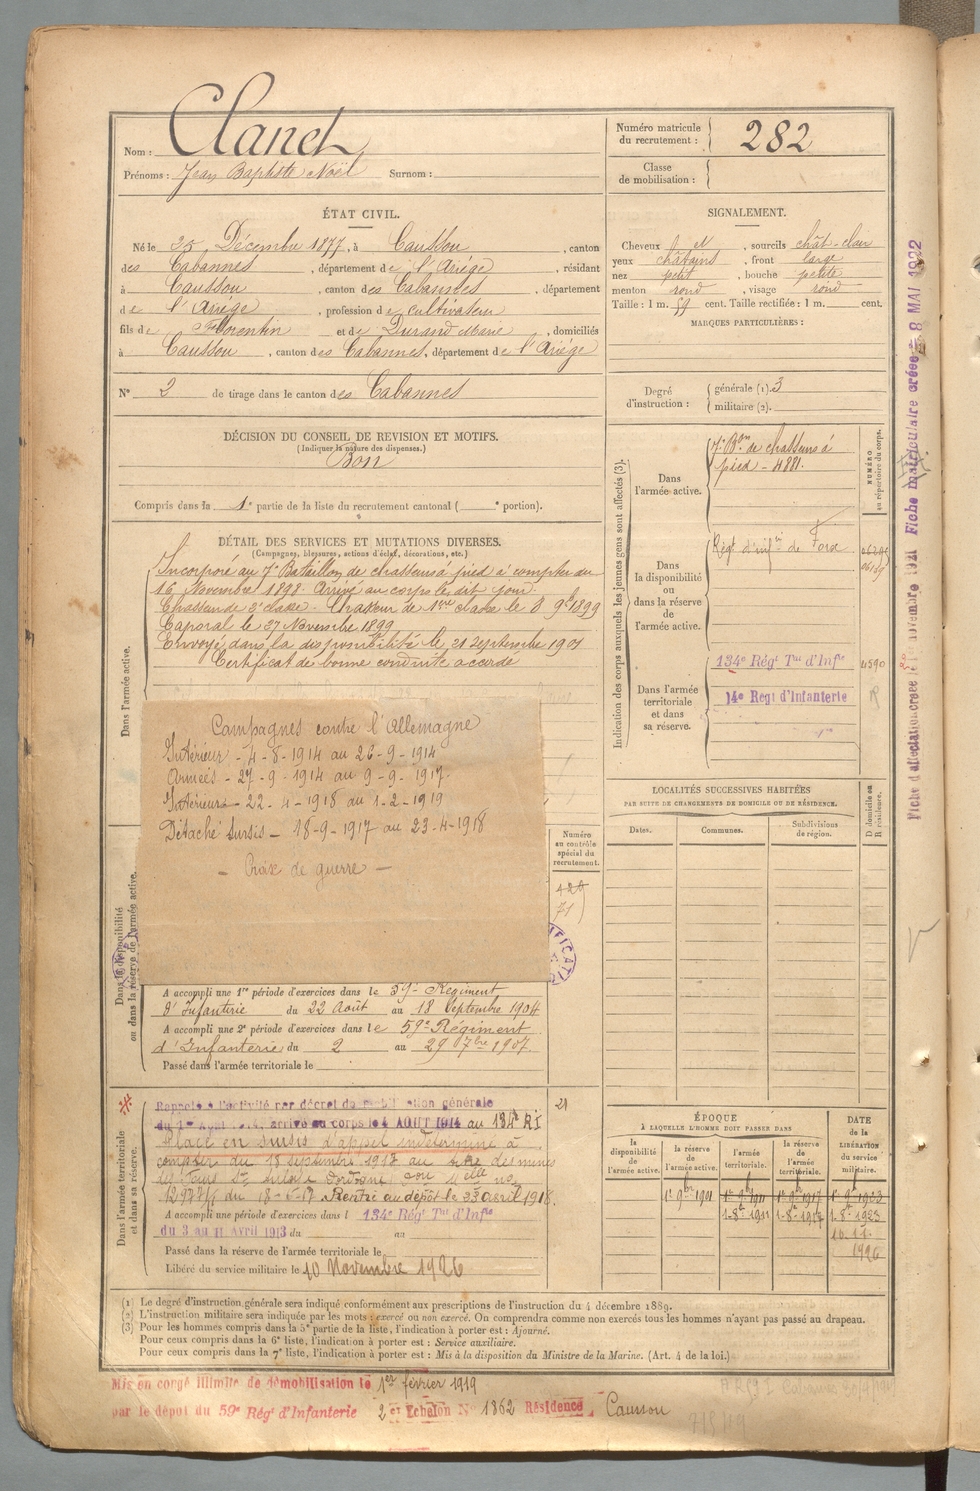 Nom : Clanet
Prénoms : Jean Baptiste Noël Surnom :
Numéro matricule du recrutement : 282
Classe de mobilisation :
ÉTAT CIVIL.
Né le 25 Décembre 1877, à Caussou, canton
des Cabannes, département de l'Ariège, résidant
à Caussou, canton des Cabannes, département
de l'Ariège, profession de cultivateur
fils de Florentin et de Durand Marie, domiciliés
à Caussou, canton des Cabannes, département de l'Ariège
N° 2 de tirage dans le canton des Cabannes
SIGNALEMENT.
Cheveux et, sourcils chât-clair
yeux châtains, front large
nez petit, bouche petite
menton rond, visage rond
Taille : 1 m. 59 cent. Taille rectifiée : 1 m. cent.
MARQUES PARTICULIÈRES :
Degré d'instruction : générale (1). 3
militaire (2).
DÉCISION DU CONSEIL DE REVISION ET MOTIFS.
(Indiquer la nature des dispenses.)
Bon
Compris dans la 1e partie de la liste du recrutement cantonal ( e portion).
DÉTAIL DES SERVICES ET MUTATIONS DIVERSES.
(Campagnes, blessures, actions d'éclat, décorations, etc.)
Dans l'armée active.
Incorporé au 7e Bataillon de chasseurs à pied à compter du
16 Novembre 1898. Arrivé au corps le dit jour.
Chasseur de 2e classe. Chasseur de 1ère classe le 8 9bre 1899
Caporal le 27 Novembre 1899
Envoyé dans la disponibilité le 21 Septembre 1901
Certificat de bonne conduite accordé
Campagnes contre l'Allemagne
Intérieur - 4-8-1914 au 26-9-1914
Armées - 27-9-1914 au 9-9-1917.
Intérieur - 22-4-1918 au 1-2-1919
Détaché Sursis - 18-9-1917 au 23-4-1918
- Croix de guerre -
Dans la disponibilité ou dans la réserve de l'armée active.
Numéro au contrôle spécial du recrutement.
429
71
A accompli une 1re période d'exercices dans le 59e Régiment
d'Infanterie du 22 Août au 18 Septembre 1904
A accompli une 2e période d'exercices dans le 59e Régiment
d'Infanterie du 2 au 29 7bre 1907.
Passé dans l'armée territoriale le
Dans l'armée territoriale et dans sa réserve.
Rappelé à l'activité par décret de mobilisation générale
du 1er Août 1914, arrivé au corps le 4 AOUT 1914 au 134e R.I
Placé en sursis d'appel indéterminé à
compter du 18 septembre 1917 au titre des mines
du 18-6-17 Rentré au dépôt le 23 avril 1918.
A accompli une période d'exercices dans l 134e Régt Tal d'Infie
du 3 au 11 Avril 1913 du au
Passé dans la réserve de l'armée territoriale le
Libéré du service militaire le 10 Novembre 1926
21
Indication des corps auxquels les jeunes gens sont affectés (3).
Dans l'armée active.
7e Bon de chasseurs à
pied - 4881.
NUMÉRO au répertoire du corps.
Dans la disponibilité ou dans la réserve de l'armée active.
Régt d'infie de Foix
Dans l'armée territoriale et dans sa réserve.
134e Régt Tal d'Infie
4590
14e Regt d'Infanterie
LOCALITÉS SUCCESSIVES HABITÉES
PAR SUITE DE CHANGEMENTS DE DOMICILE OU DE RÉSIDENCE.
D domicile ou R résidence.
Dates. Communes. Subdivisions de région.
ÉPOQUE
À LAQUELLE L'HOMME DOIT PASSER DANS
la disponibilité de l'armée active.
la réserve de l'armée active.
l'armée territoriale.
la réserve de l'armée territoriale.
DATE de la LIBÉRATION du service militaire.
1er 9bre 1901 1er 9bre 1911 1er 9bre 1917 1er 9bre 1923
1-8bre 1911 1-8bre 1917 1-8bre 1923
10.11.
1926
(1) Le degré d'instruction générale sera indiqué conformément aux prescriptions de l'instruction du 4 décembre 1889.
(2) L'instruction militaire sera indiquée par les mots : exercé ou non exercé. On comprendra comme non exercés tous les hommes n'ayant pas passé au drapeau.
(3) Pour les hommes compris dans la 5e partie de la liste, l'indication à porter est : Ajourné.
Pour ceux compris dans la 6e liste, l'indication à porter est : Service auxiliaire.
Pour ceux compris dans la 7e liste, l'indication à porter est : Mis à la disposition du Ministre de la Marine. (Art. 4 de la loi.)
Mis en congé illimité de démobilisation le 1er février 1919
par le dépôt du 59e Régt d'Infanterie 2e Echelon N° 1362 Résidence Caussou
Fiche d'affectation créée le novembre 1921 Fiche matriculaire créée - 8 MAI 1922